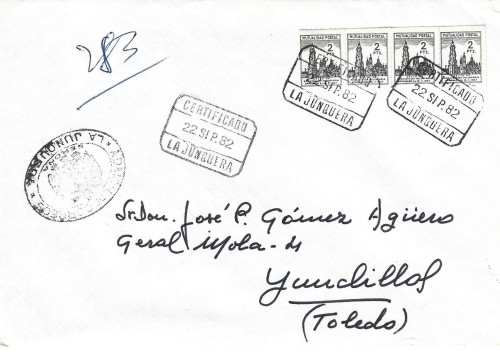 283
MUTUALIDAD POSTAL MUTUALIDAD POSTAL MUTUALIDAD POSTAL MUTUALIDAD POSTAL
2 PTS. 2 PTS. 2 PTS. 2 PTS.
CERTIFICADO
22 SEP. 82
LA JUNQUERA
CERTIFICADO
22 SEP. 82
LA JUNQUERA
CERTIFICADO
22 SEP. 82
LA JUNQUERA
LA JUNQUERA
Sr. Don. José P. Gómez Agüero
Geral Mola-
Yuncillos
(Toledo)